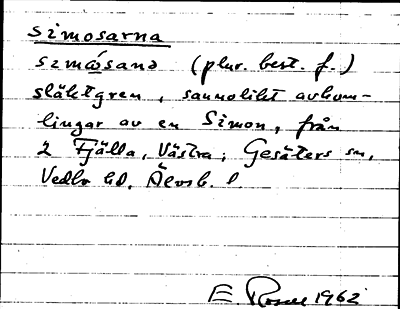 Simosarna
simὼsanə (plur. best. f.)
släktgren, sannolikt avkom-
lingar av en Simon, från
2 Fjälla, Västra; Gesäters sn,
Vedbo hd. Älvsb. l.
E 1962